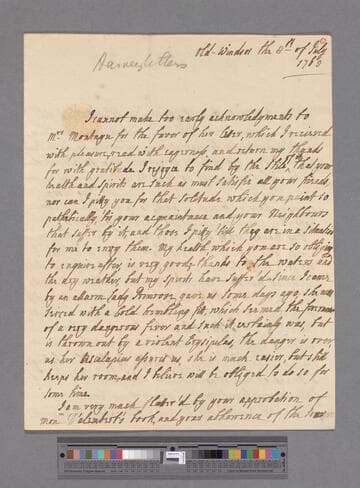 Old-Windsor the 8th of July
1768
Barney letters
I cannot make too early acknowledgments to
Mrs Montagu for the favor of her letter, which I received
with pleasure, read with eagerness, and return my thanks
for with gratitude. I rejoyce to find by the that your
health and spirits are such as must satisfie all your friends,
nor can I pitty you for that solitude which you paint so
pathetically, tis your acquaintance and your Neighbours
that suffer by it, and those I pitty tho' they are in a situation
for me to envy them. My health which you are so obliging
to enquire after, is very good, thanks to the waters and
the dry weather, but my spirits have suffer'd since I came
by an allarm Lady Primrose gave us some days ago she was
seized with a Cold trembling fit, which seemed the forerunner
of a very dangerous fever and such it certainly was, but
is thrown out by a violent Erysipelas, the danger is over
as her Esculapius assures us she is much easier, but still
keeps her room, and I believe will be obliged to do so for
some time.
I am very much flatter'd by your approbation of
monr book, and your allowance of the